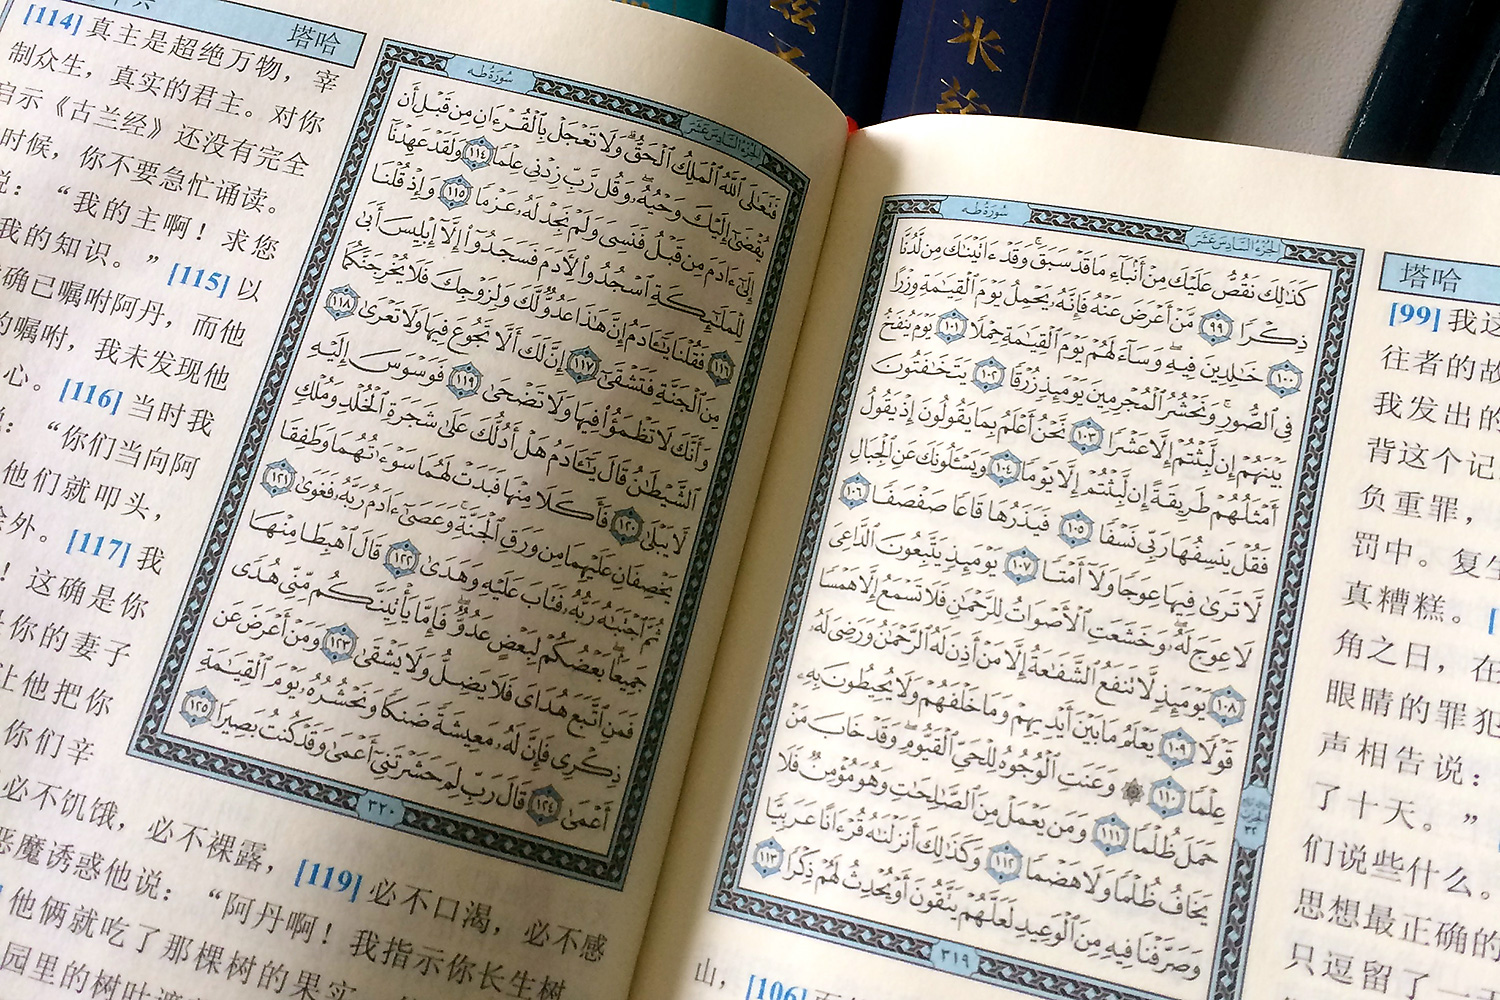 سُورَةُ طه
الجُزْءُ السَّادِسَ عَشَرَ
كَذَٰلِكَ نَقُصُّ عَلَيْكَ مِنْ أَنۢبَآءِ مَا قَدْ سَبَقَۚ وَقَدْ ءَاتَيْنَٰكَ مِن لَّدُنَّا
ذِكْرًا ٩٩ مَّنْ أَعْرَضَ عَنْهُ فَإِنَّهُۥ يَحْمِلُ يَوْمَ ٱلْقِيَٰمَةِ وِزْرًا
١٠٠ خَٰلِدِينَ فِيهِۖ وَسَآءَ لَهُمْ يَوْمَ ٱلْقِيَٰمَةِ حِمْلًا ١٠١ يَوْمَ يُنفَخُ
فِى ٱلصُّورِۚ وَنَحْشُرُ ٱلْمُجْرِمِينَ يَوْمَئِذٍ زُرْقًا ١٠٢ يَتَخَٰفَتُونَ
بَيْنَهُمْ إِن لَّبِثْتُمْ إِلَّا عَشْرًا ١٠٣ نَّحْنُ أَعْلَمُ بِمَا يَقُولُونَ إِذْ يَقُولُ
أَمْثَلُهُمْ طَرِيقَةً إِن لَّبِثْتُمْ إِلَّا يَوْمًا ١٠٤ وَيَسْـَٔلُونَكَ عَنِ ٱلْجِبَالِ
فَقُلْ يَنسِفُهَا رَبِّى نَسْفًا ١٠٥ فَيَذَرُهَا قَاعًا صَفْصَفًا ١٠٦
لَّا تَرَىٰ فِيهَا عِوَجًا وَلَآ أَمْتًا ١٠٧ يَوْمَئِذٍ يَتَّبِعُونَ ٱلدَّاعِىَ
لَا عِوَجَ لَهُۥۖ وَخَشَعَتِ ٱلْأَصْوَاتُ لِلرَّحْمَٰنِ فَلَا تَسْمَعُ إِلَّا هَمْسًا
١٠٨ يَوْمَئِذٍ لَّا تَنفَعُ ٱلشَّفَٰعَةُ إِلَّا مَنْ أَذِنَ لَهُ ٱلرَّحْمَٰنُ وَرَضِىَ لَهُۥ
قَوْلًا ١٠٩ يَعْلَمُ مَا بَيْنَ أَيْدِيهِمْ وَمَا خَلْفَهُمْ وَلَا يُحِيطُونَ بِهِۦ
عِلْمًا ١١٠ ۞ وَعَنَتِ ٱلْوُجُوهُ لِلْحَىِّ ٱلْقَيُّومِۖ وَقَدْ خَابَ مَنْ
حَمَلَ ظُلْمًا ١١١ وَمَن يَعْمَلْ مِنَ ٱلصَّٰلِحَٰتِ وَهُوَ مُؤْمِنٌ فَلَا
يَخَافُ ظُلْمًا وَلَا هَضْمًا ١١٢ وَكَذَٰلِكَ أَنزَلْنَٰهُ قُرْءَانًا عَرَبِيًّا
وَصَرَّفْنَا فِيهِ مِنَ ٱلْوَعِيدِ لَعَلَّهُمْ يَتَّقُونَ أَوْ يُحْدِثُ لَهُمْ ذِكْرًا ١١٣
٣١٩
塔哈
[99]我这
往者的故
我发出的
背这个记
负重罪，
罚中。复生
真糟糕。[
角之日，在
眼睛的罪犯
声相告说：
了十天。”
们说些什么。
思想最正确的
只逗留了一
山，[106]
سُورَةُ طه
الجُزْءُ السَّادِسَ عَشَرَ
فَتَعَٰلَى ٱللَّهُ ٱلْمَلِكُ ٱلْحَقُّۗ وَلَا تَعْجَلْ بِٱلْقُرْءَانِ مِن قَبْلِ أَن
يُقْضَىٰٓ إِلَيْكَ وَحْيُهُۥۖ وَقُل رَّبِّ زِدْنِى عِلْمًا ١١٤ وَلَقَدْ عَهِدْنَآ
إِلَىٰٓ ءَادَمَ مِن قَبْلُ فَنَسِىَ وَلَمْ نَجِدْ لَهُۥ عَزْمًا ١١٥ وَإِذْ قُلْنَا
لِلْمَلَٰٓئِكَةِ ٱسْجُدُوا۟ لِءَادَمَ فَسَجَدُوٓا۟ إِلَّآ إِبْلِيسَ أَبَىٰ
١١٦ فَقُلْنَا يَٰٓـَٔادَمُ إِنَّ هَٰذَا عَدُوٌّ لَّكَ وَلِزَوْجِكَ فَلَا يُخْرِجَنَّكُمَا
مِنَ ٱلْجَنَّةِ فَتَشْقَىٰٓ ١١٧ إِنَّ لَكَ أَلَّا تَجُوعَ فِيهَا وَلَا تَعْرَىٰ ١١٨
وَأَنَّكَ لَا تَظْمَؤُا۟ فِيهَا وَلَا تَضْحَىٰ ١١٩ فَوَسْوَسَ إِلَيْهِ
ٱلشَّيْطَٰنُ قَالَ يَٰٓـَٔادَمُ هَلْ أَدُلُّكَ عَلَىٰ شَجَرَةِ ٱلْخُلْدِ وَمُلْكٍ
لَّا يَبْلَىٰ ١٢٠ فَأَكَلَا مِنْهَا فَبَدَتْ لَهُمَا سَوْءَٰتُهُمَا وَطَفِقَا
يَخْصِفَانِ عَلَيْهِمَا مِن وَرَقِ ٱلْجَنَّةِۚ وَعَصَىٰٓ ءَادَمُ رَبَّهُۥ فَغَوَىٰ ١٢١
ثُمَّ ٱجْتَبَٰهُ رَبُّهُۥ فَتَابَ عَلَيْهِ وَهَدَىٰ ١٢٢ قَالَ ٱهْبِطَا مِنْهَا
جَمِيعًۢاۖ بَعْضُكُمْ لِبَعْضٍ عَدُوٌّۖ فَإِمَّا يَأْتِيَنَّكُم مِّنِّى هُدًى
فَمَنِ ٱتَّبَعَ هُدَاىَ فَلَا يَضِلُّ وَلَا يَشْقَىٰ ١٢٣ وَمَنْ أَعْرَضَ عَن
ذِكْرِى فَإِنَّ لَهُۥ مَعِيشَةً ضَنكًا وَنَحْشُرُهُۥ يَوْمَ ٱلْقِيَٰمَةِ
أَعْمَىٰ ١٢٤ قَالَ رَبِّ لِمَ حَشَرْتَنِىٓ أَعْمَىٰ وَقَدْ كُنتُ بَصِيرًا ١٢٥
٣٢٠
塔哈
[114]真主是超绝万物，宰
制众生，真实的君主。对你
启示《古兰经》还没有完全
时候，你不要急忙诵读。
说：“我的主啊！求您
我的知识。”[115]以
确已嘱咐阿丹，而他
的嘱咐，我未发现他
心。[116]当时我
：“你们当向阿
他们就叩头，
外。[117]我
！这确是你
你的妻子
让他把你
你们辛
必不饥饿，必不裸露，[119]必不口渴，必不感
恶魔诱惑他说：“阿丹啊！我指示你长生树
他俩就吃了那棵树的果实
园里的树叶遮
米